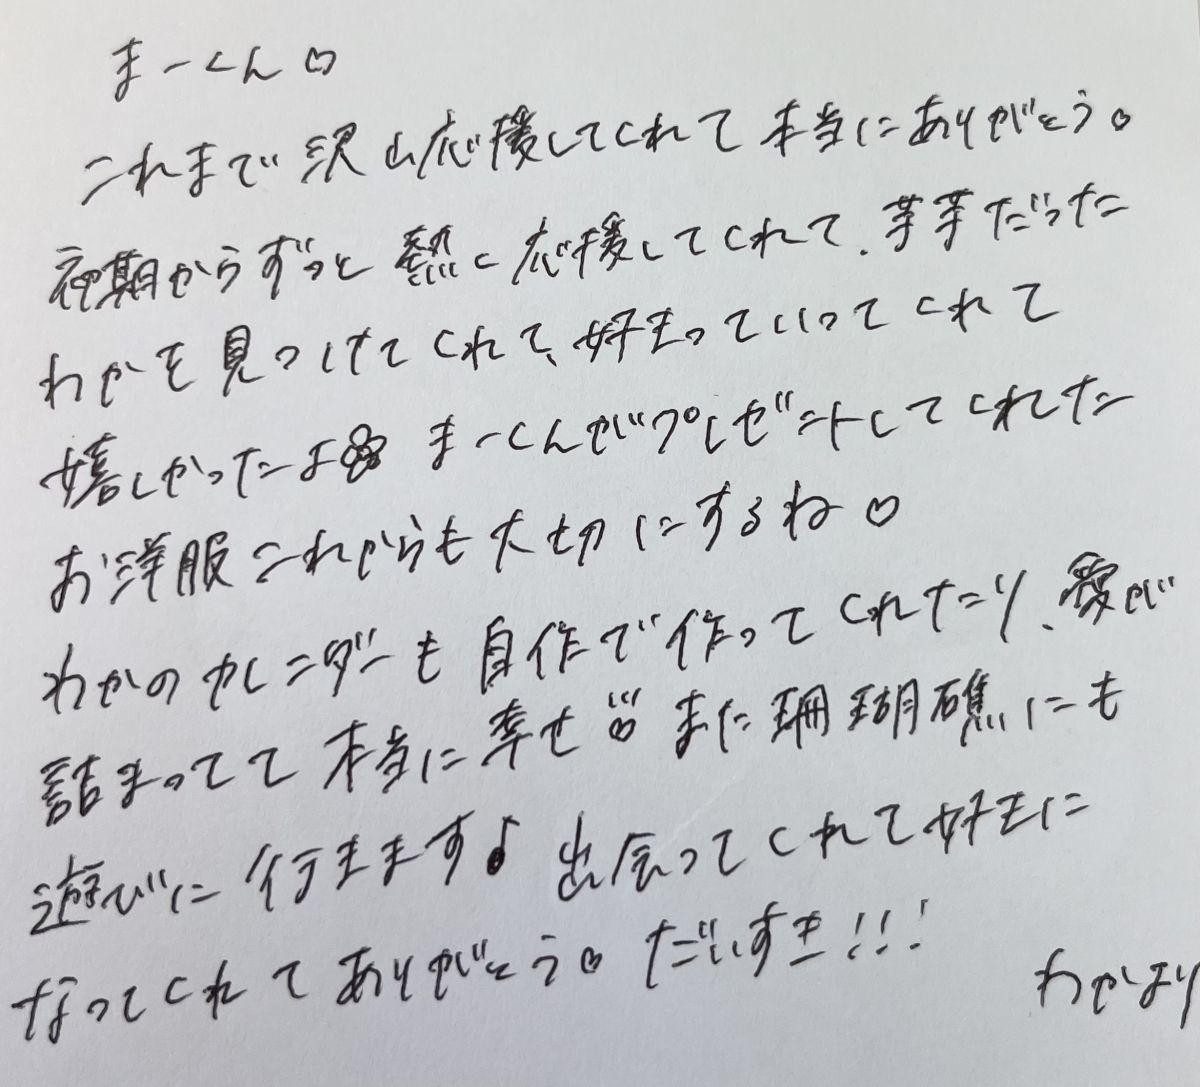 まーくん♡
これまで沢山応援してくれて本当にありがとう。
初期からずっと熱く応援してくれて、芋芋だった
わかを見つけてくれて、好きっていってくれて
嬉しかったよ まーくんがプレゼントしてくれた
お洋服これからも大切にするね♡
わかのカレンダーも自作で作ってくれたり、愛が
詰まってて本当に幸せ♡ また珊瑚礁にも
遊びに行きます♪ 出会ってくれて好きに
なってくれてありがとう♡ だいすき!!!
わかより